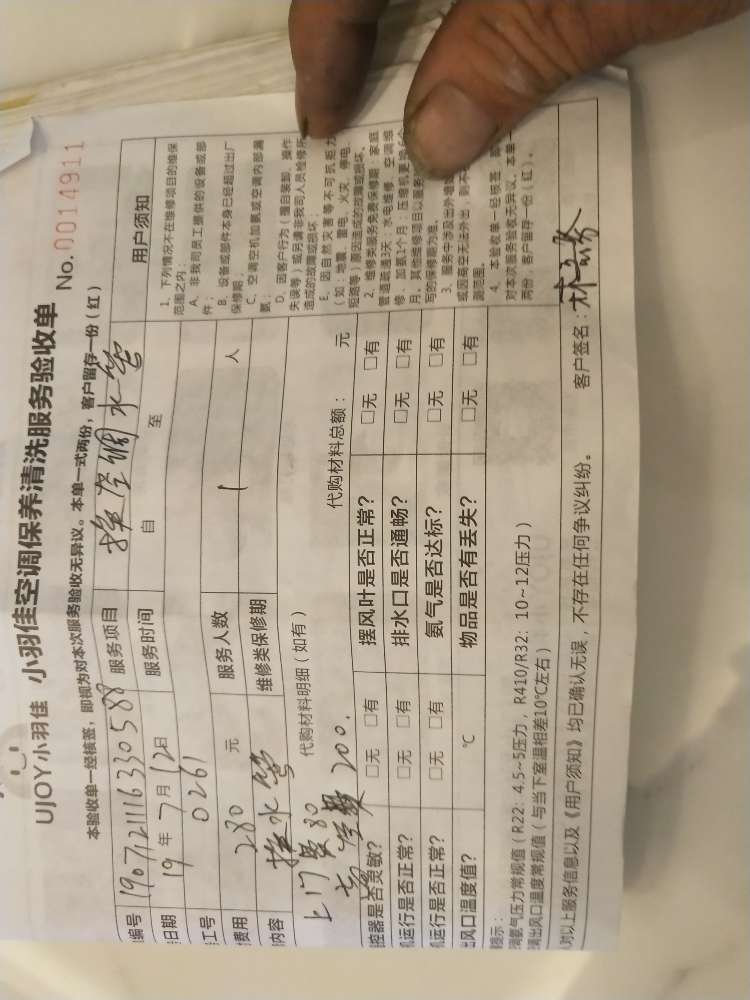 UJOY小羽佳 小羽佳空调保养清洗服务验收单
No.0014911
本验收单一经核签，即视为对本次服务验收无异议。本单一式两份，客户留存一份（红）
编号 190712111633058 服务项目 接空调水管
日期 19年7月12日 服务时间 自 至
工号 0261
费用 280 元 服务人数 1 人
内容 接水管 维修类保修期
上门费80
高空费200.
代购材料明细（如有） 代购材料总额： 元
控器是否灵敏? □无 □有 摆风叶是否正常? □无 □有
机运行是否正常? □无 □有 排水口是否通畅? □无 □有
运行是否正常? □无 □有 氨气是否达标? □无 □有
出风口温度值? ℃ 物品是否有丢失? □无 □有
提示：
氨气压力常规值（R22：4.5~5压力，R410/R32：10~12压力）
出风口温度常规值（与当下室温相差10℃左右）
对以上服务信息以及《用户须知》均已确认无误，不存在任何争议纠纷。 客户签名：
用户须知
1、下列情况不在维修项目的维保
范围之内：
A、非我司员工提供的设备或部
件；
B、设备或部件本身已经超过出厂
保修期；
C、空调空机加氨或空调内部漏
氨；
D、因客户行为（擅自装卸、操作
失误等）或另请非我司人员检修所
造成的故障或损坏；
E、因自然灾害等不可抗拒力
（如：地震、雷电、火灾、停电、
短路等）原因造成的故障或损坏。
2、维修类服务免费保修期：家庭
管道疏通3天，水电维修、空调维
修、加氨1个月；压缩机更换6个
月。其他维修项目以
写的保修期为准。
3、服务中涉及出外墙
或因高空无法外出，则不
测范围。
4、本验收单一经核签，即
对本次服务验收无异议。本单一
两份，客户留存一份（红）。